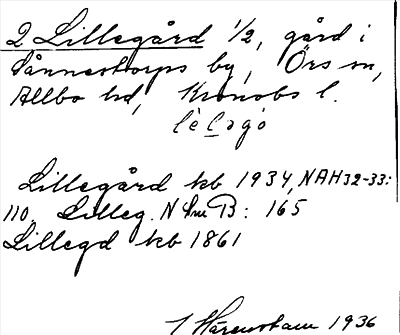 2 Lillegård 1/2, gård i
Sånnestorps by, Örs sn,
Allbo hd, Kronobs l.
Lillegård kb 1934, NAH 32-33:
110. Lilleg. N Sm B: 165
Lillegd kb 1861
Härenstam 1936